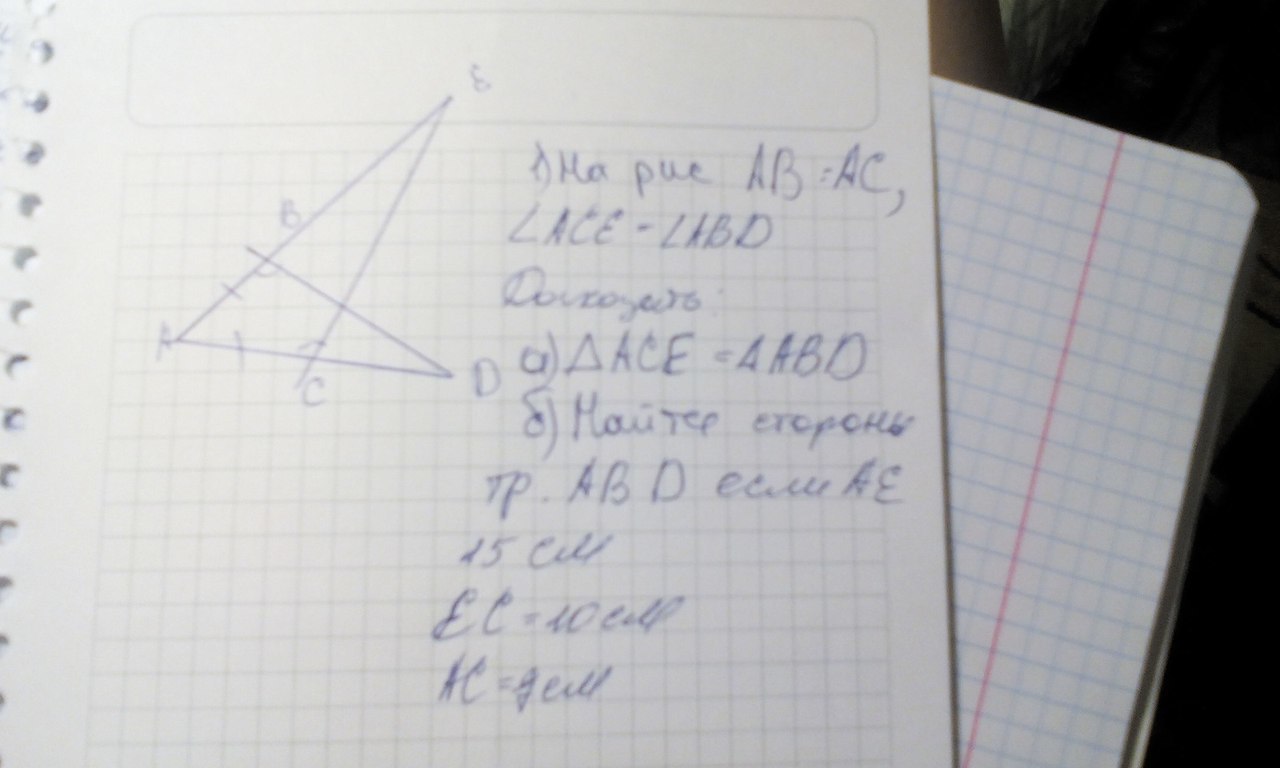 E
B
A
C
D
1) На рис AB = AC,
∠ACE = ∠ABD
Доказать:
а) △ACE = △ABD
б) Найти стороны
тр. ABD если AE
15 см
EC = 10 см
AC = 7 см